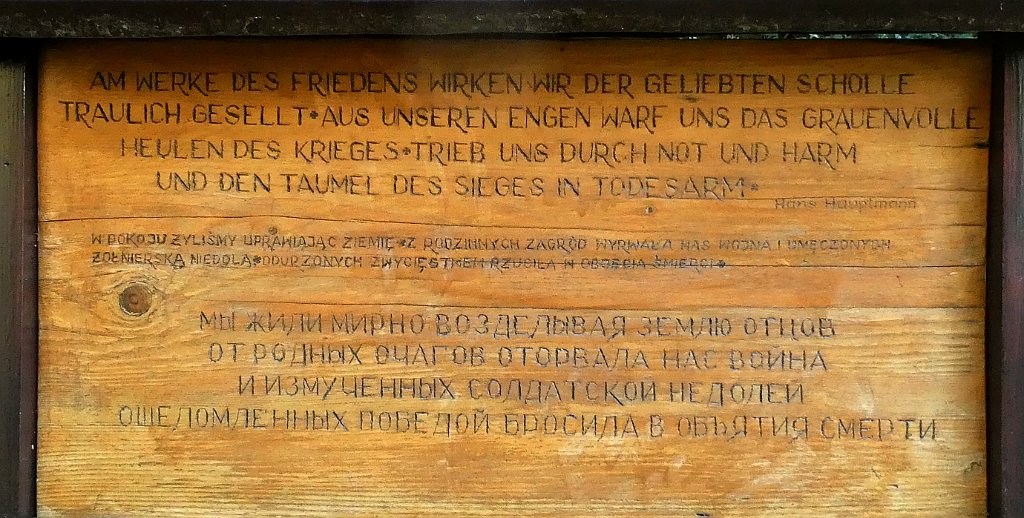 AM WERKE DES FRIEDENS WIRKEN WIR DER GELIEBTEN SCHOLLE
TRAULICH GESELLT•AUS UNSEREN ENGEN WARF UNS DAS GRAUENVOLLE
HEULEN DES KRIEGES•TRIEB UNS DURCH NOT UND HARM
UND DEN TAUMEL DES SIEGES IN TODESARM•
Hans Hauptmann
W POKOJU ŻYLIŚMY UPRAWIAJĄC ZIEMIĘ•Z RODZINNYCH ZAGRÓD WYRWAŁA NAS WOJNA I UMĘCZONYCH
ŻOŁNIERSKĄ NIEDOLĄ•ODURZONYCH ZWYCIĘSTWEM RZUCIŁA W OBJĘCIA ŚMIERCI•
МЫ ЖИЛИ МИРНО ВОЗДЕЛЫВАЯ ЗЕМЛЮ ОТЦОВ
ОТ РОДНЫХ ОЧАГОВ ОТОРВАЛА НАС ВОЙНА
И ИЗМУЧЕННЫХ СОЛДАТСКОЙ НЕДОЛЕЙ
ОШЕЛОМЛЕННЫХ ПОБЕДОЙ БРОСИЛА В ОБЪЯТИЯ СМЕРТИ